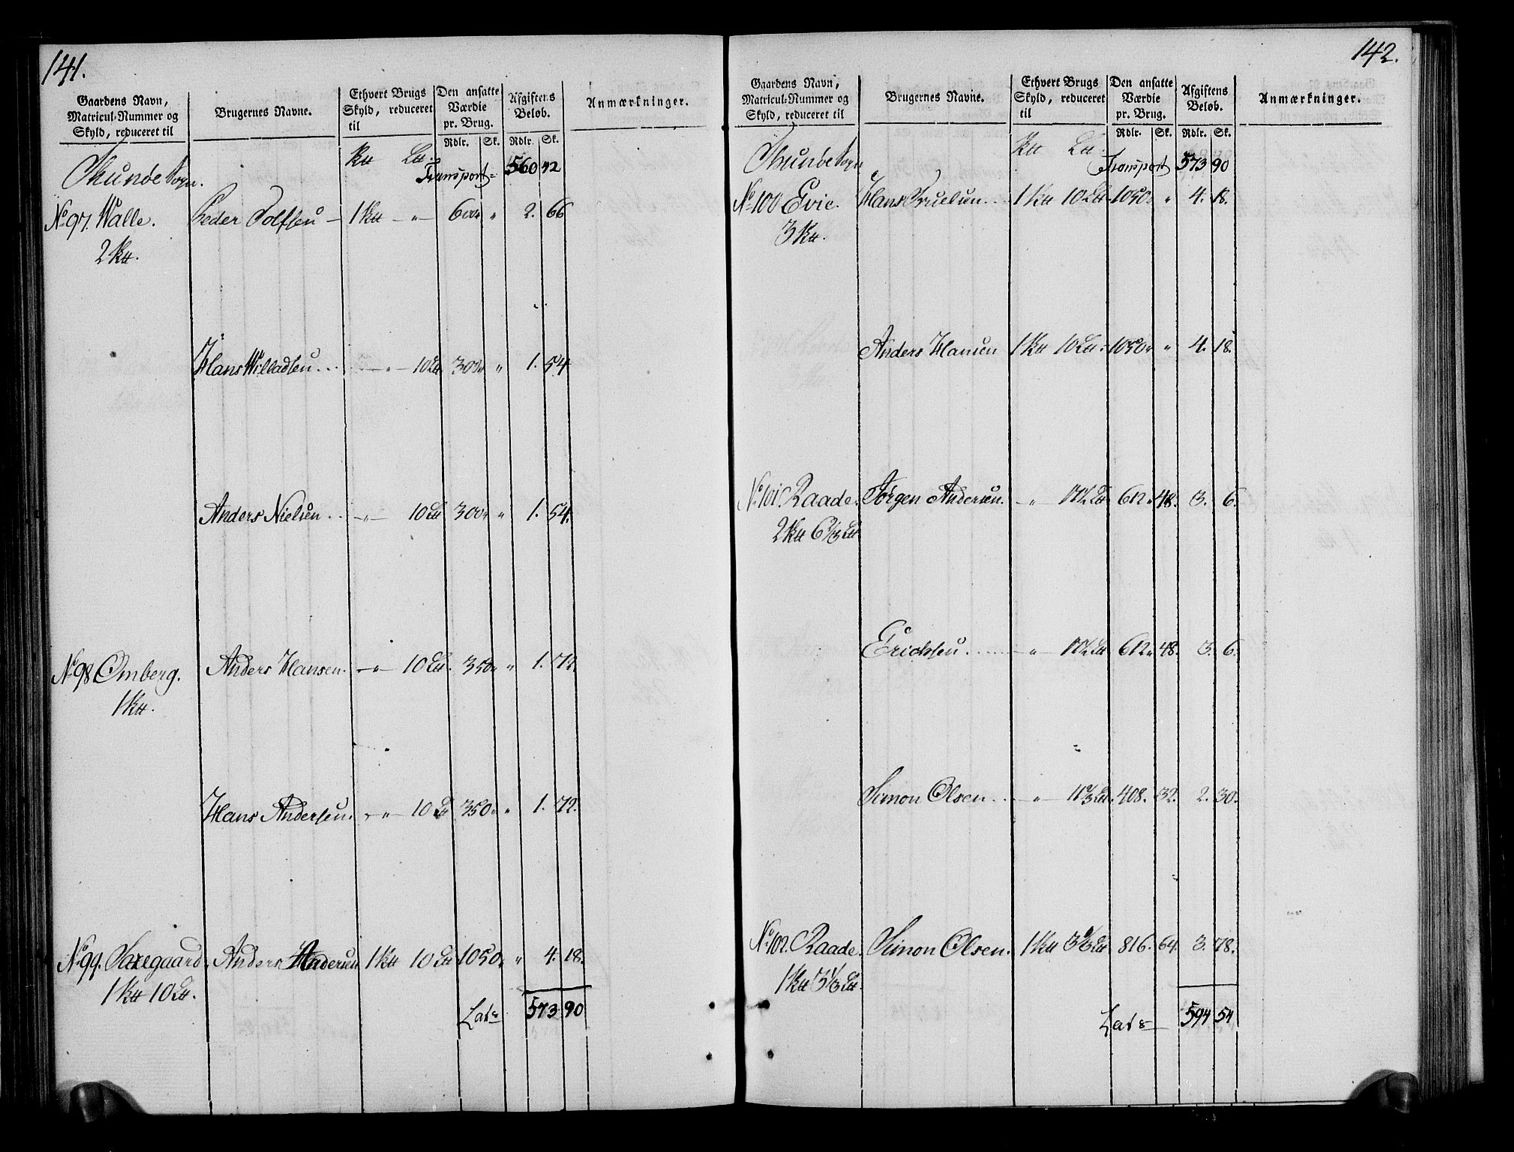 141.
Gaardens Navn, Matricul-Nummer og Skyld, reduceret til | Brugernes Navne. | Ethvert Brugs Skyld, reduceret til | Den ansatte Værdie pr. Brug. Rdlr. Sk. | Afgiftens Beløb. Rdlr. Sk. | Anmærkninger.
Skunde Sogn. Transport 560 42
No 97. Walle. Peder Tolfsen – 1 – „ – 600 „ 2. 66
2
Hans Willadsen – „ – 10 300 „ 1. 54
Anders Nielsen – „ – 10 300 „ 1. 54.
No 98 Omberg. Anders Hansen – „ – 10 350 „ 1. 72.
1
Hans Andersen – „ – 10 350 „ 1. 72.
No 99. Saxegaard Anders Andersen 1 10 1050 „ 4. 18.
1 10
Lat: 573 90
142.
Gaardens Navn, Matricul-Nummer og Skyld, reduceret til | Brugernes Navne. | Ethvert Brugs Skyld, reduceret til | Den ansatte Værdie pr. Brug. Rdlr. Sk. | Afgiftens Beløb. Rdlr. Sk. | Anmærkninger.
Skunde Sogn Transport 573 90
No 100 Evie Hans Truelsen 1 10 1050 „ 4. 18.
3
Anders Hansen 1 10 1050 „ 4. 18.
No 101. Raade. Jørgen Andersen – „ 612 48. 3. 6.
2 6
Erichsen – „ 612 48. 3. 6.
Simon Olsen – „ 408. 32. 2. 30.
No 102. Raade. Simon Olsen. 1 816. 64. 3. 78.
1
Lat: 594 54